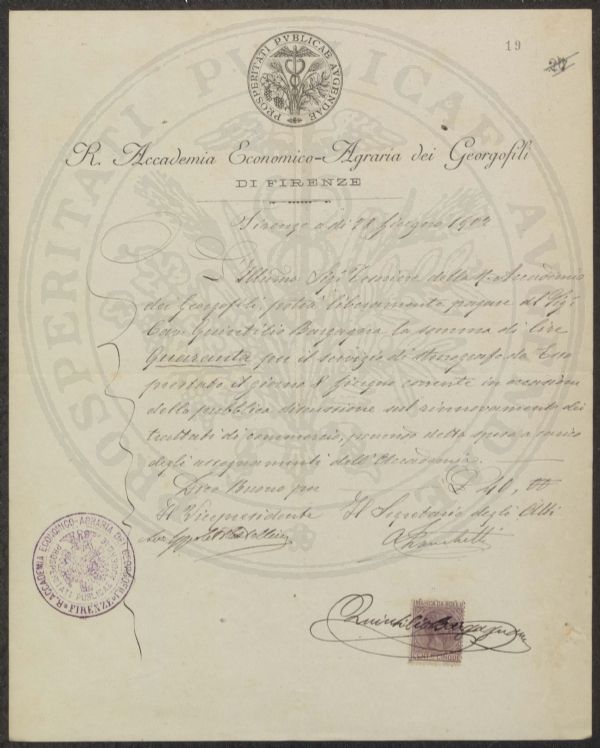 PROSPERITATI PVBLICAE AVGENDAE
19
27
R. Accademia Economico-Agraria dei Georgofili
DI FIRENZE
Firenze a di Giugno 1902
Illmo Sigr Tesoriere della R. Accademia
dei Georgofili, potrà liberamente pagare al Sigr
Cav. Quintilio Bargagna la somma di lire
Quaranta per il servizio di stenografo da Esso
prestato il giorno 8 Giugno corrente in occasione
della pubblica discussione sul rinnovamento dei
trattati di commercio, ponendo detta spesa a carico
degli assegnamenti dell'Accademia.
Dico Buono per £ 40,
Il Vicepresidente Il Segretario degli Atti
Avv.
R. ACCADEMIA ECONOMICO-AGRARIA DEI GEORGOFILI
FIRENZE
Quintilio Bargagna